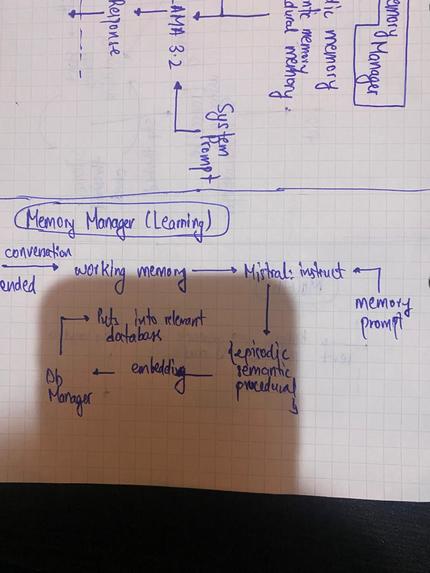 Memory Manager
dic memory
memory
dural memory.
AMA 3.2
Response
System
Prompt
Memory Manager (Learning)
convenation
ended
working memory
Mistral: instruct
memory
prompt
{episodic
semantic
procedural}
embedding
Db
Manager
Puts into relevant
database